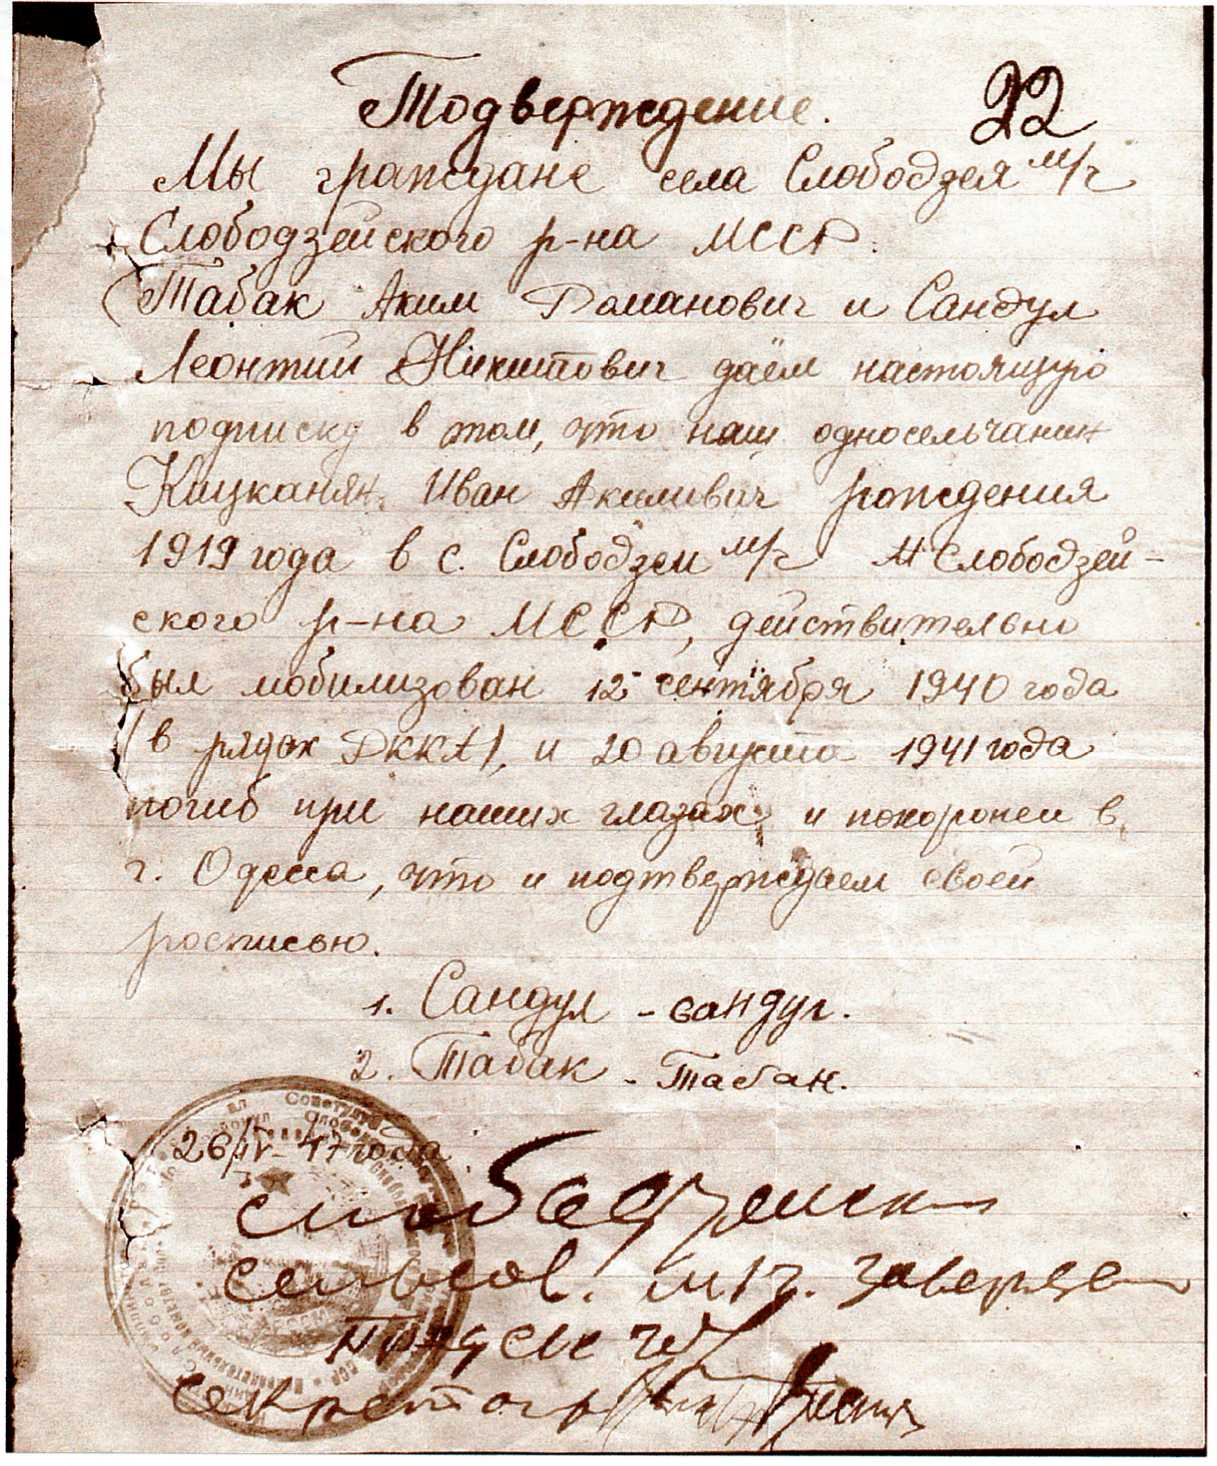 Подверждение. 22
Мы граждане села Слободзея м/ч
Слободзейского р-на МССР.
Табак Аким Романович и Сандул
Леонтий Никитович даём настоящую
подписку в том, что наш односельчанин
Кицканян Иван Акимивич рождения
1919 года в с. Слободзеи м/ч Слободзей-
ского р-на МССР, действительно
был мобилизован 12 сентября 1940 года
(в рядах РККА), и 20 августа 1941 года
погиб при наших глазах и похоронен в
г. Одесса, что и подтверждаем своей
росписью.
1. Сандул - сандул.
2. Табак - Табак.
26/IV-47 года
Слободзейск
сельсов. м/ч. заверяе
Пред с/с
Секретарь